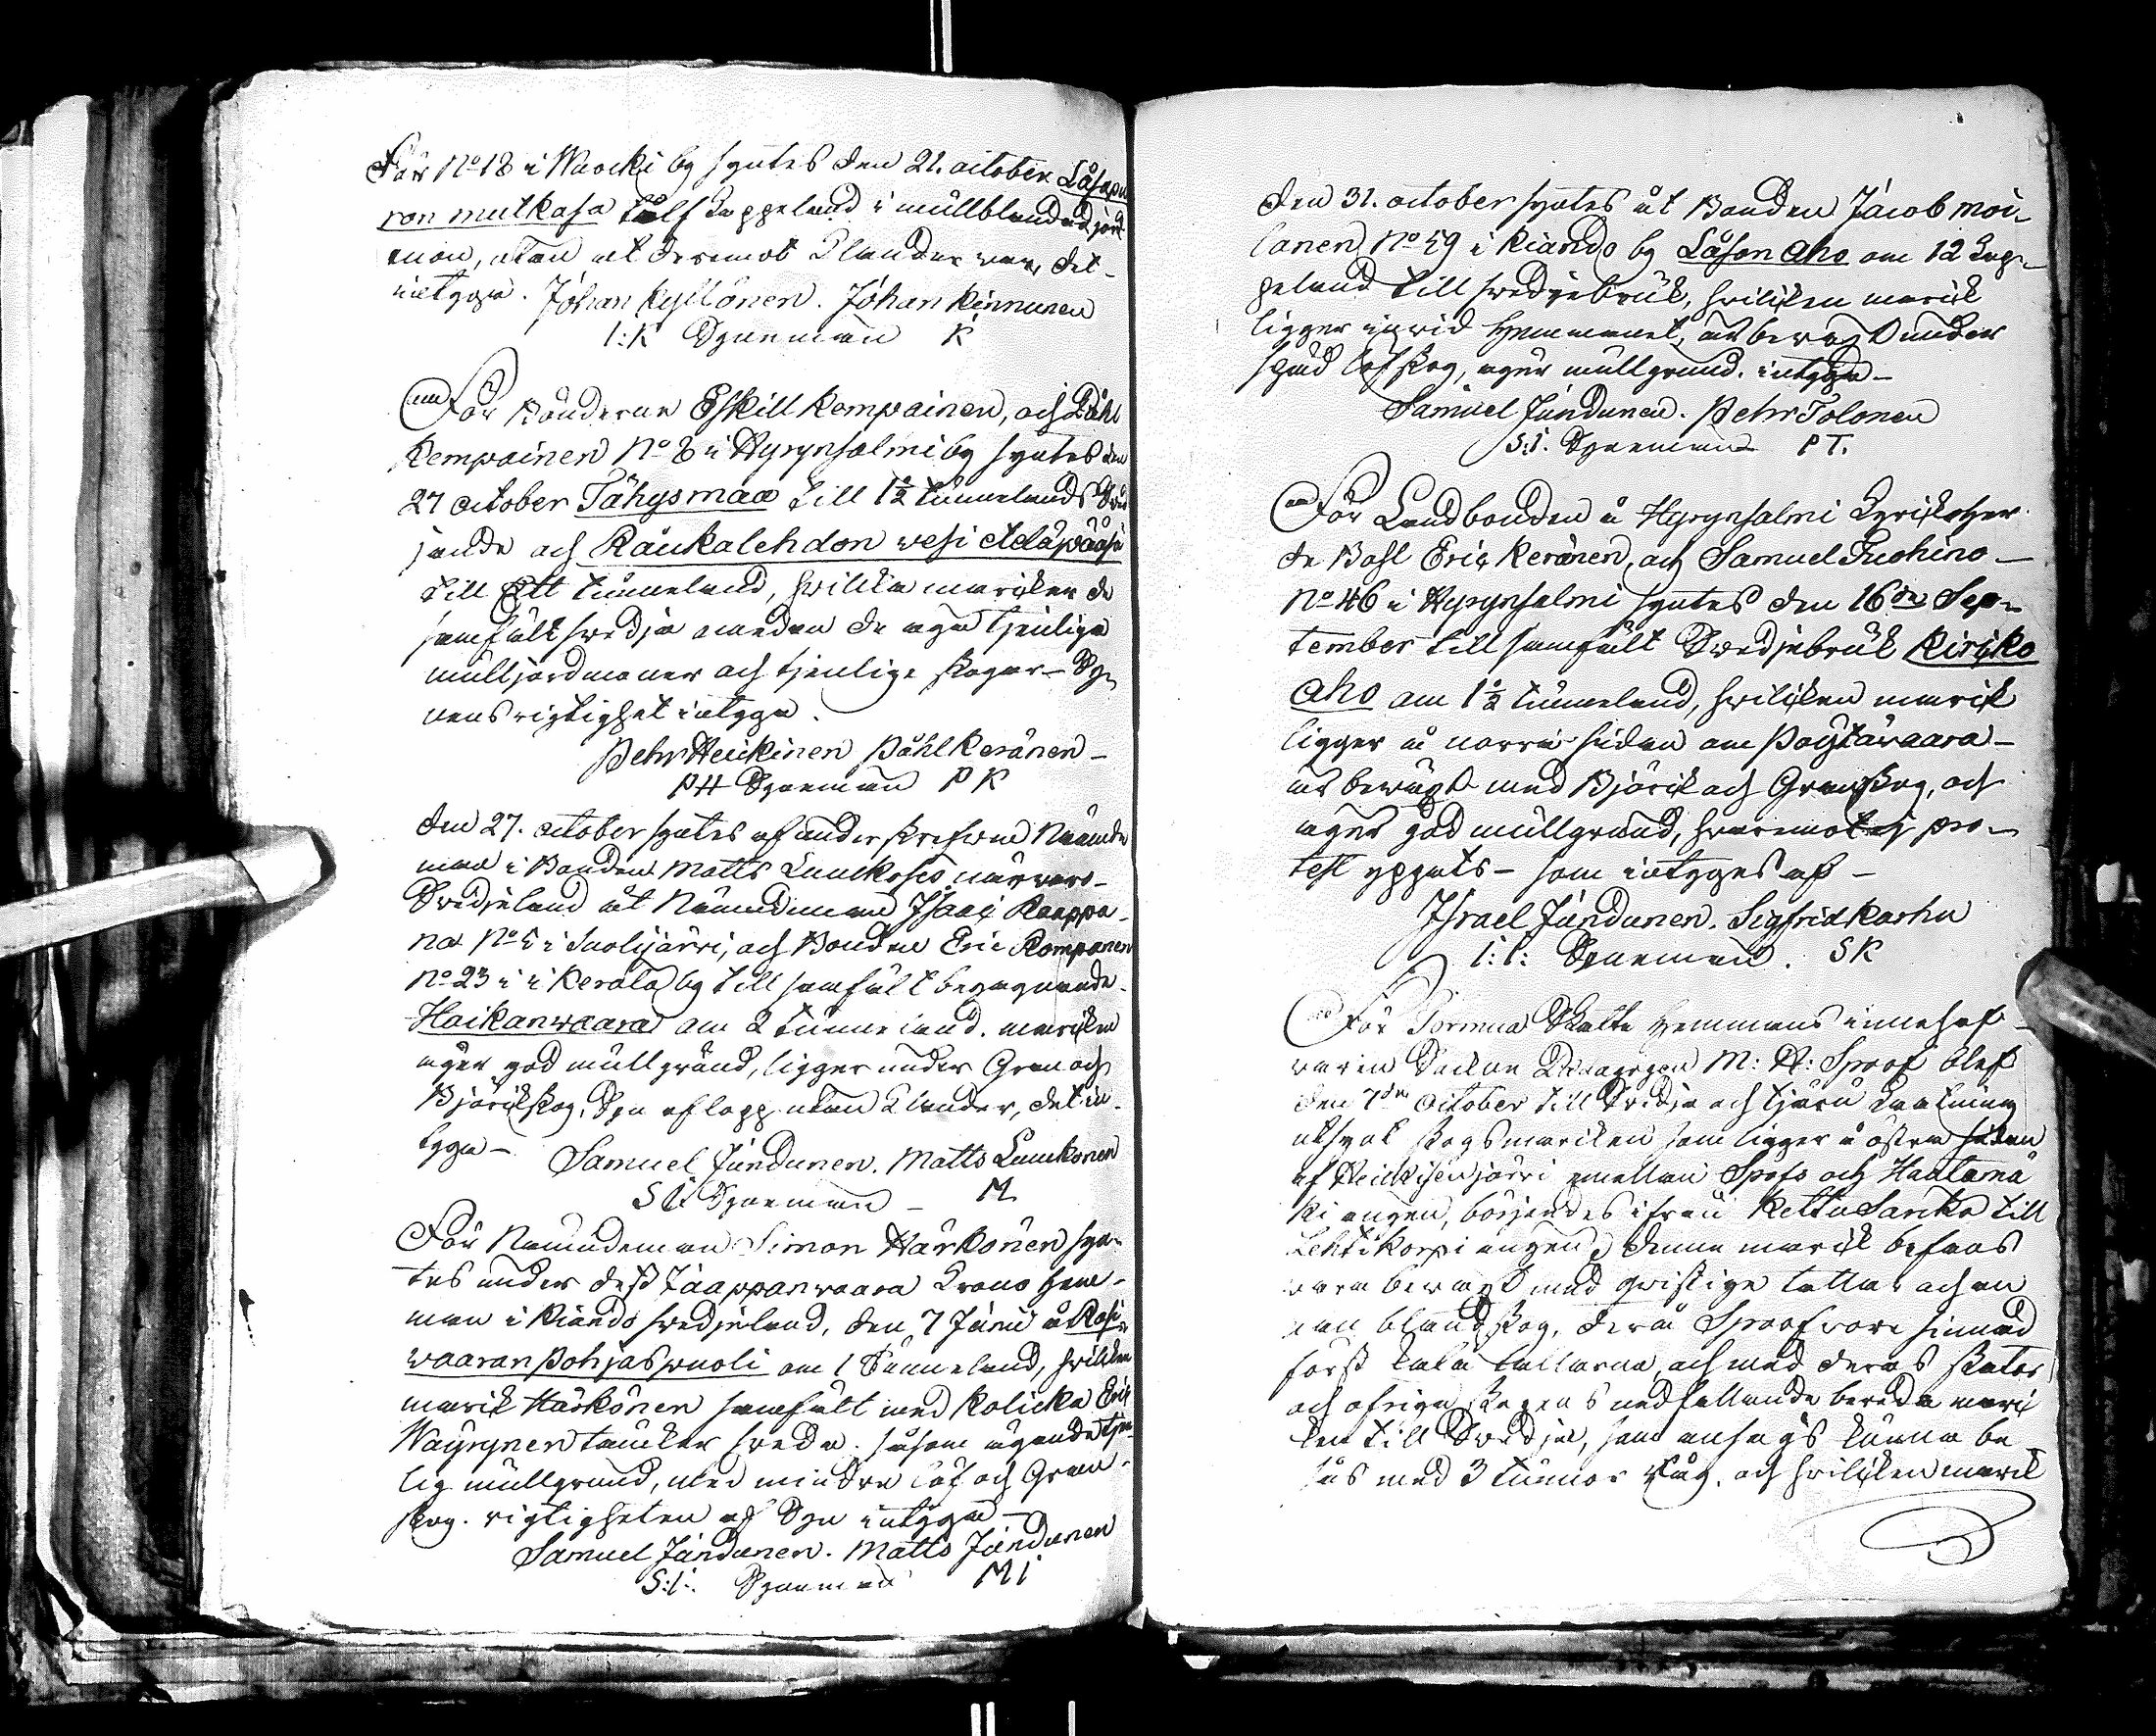 För No 18 i Wuocki by syntes den 21. october Låsapu
ron mutkasa tolf kappeland i mullblandad jord
mon, utan at deremot klander war, det
intyga. Johan Kyllönen. Johan Kinnunen
I:K Synemän K
För Bönderne Eskill Kempainen, och Påhl
Kempainen No 8 i Hyrynsalmi by syntes den
27 october Tähysmaa till 1½ tunnelands Swed
jande och Raukalehdon wesi
till Ett tunneland, hwilka marcker de
samfält swedja emedan de äga tjenliga
mulljordmoner och tjenlige skogar – Sy-
nens rigtighet intyga.
Pehr Heickinen Påhl Keränen –
PH Synemän PK
Den 27. october syntes af underskrefwne Nämnde
man i Bonden Matts Luuckoses närwaro –
Swedjeland åt Nämndeman Isaac Kaappa-
na No 5 i Suolijärri, och Bonden Eric Komponen
No 23 i i Kerälä by till samfält begagnande
Haikanwaara om 2 tunneland. marcken
äger god mullgrund, ligger under Gran och
Björckskog. Syn aflopp utan klander, det in-
tyga – Samuel Jundunen. Matts Luuckonen
SI Synemän – M
För Nämndeman Simon Härkönen syn-
tes under dess Taappanwaara Crono hem-
man i Kiando swedjeland, den 7 Junii å Rasi-
waaran Pohjaspuoli om 1 Tunneland, hwilken
marck Härkönen samfält med Kolicka Eric
Wäyrynen täncker swedja. såsom ägande tjen-
lig mullgrund, med mindre löf och Gran-
skog. rigtigheten af Syn intyga –
Samuel Jundunen. Matts Jundunen
S:I: Synemän MI
Den 31. october syntes åt Bonden Jacob Moi-
lanen No 59 i Kiando by Låson Aho om 12 kap-
peland till swedjebruk, hwilcken marck
ligger inwid Hemmanet, är bewäxt under
späd löfskog, äger mullgrund. intyga –
Samuel Jundunen. Pehr Tolonen
S.I. Synemän PT.
För Landbonden å Hyrynsalmi Kyrckoher
de Bohl Eric Keränen, och Samuel Tuohino –
No 46 i Hyrynsalmi syntes den 16de Sep-
tember till samfält Swedjebruk Kircko
Aho om 1½ tunneland, hwilcken marck
ligger å norra sidan om Pöytäwaara –
är bewäxt med Björck och Granskog, och
äger god mullgrund, hwaremot ej pro-
test yppats – som intyges af –
Israel Jundunen. Sigfrid Karhu
I:I: Synemän. SK
För Tormua Skatte Hemmans innehaf-
waren Sacellan M: H: Spoof blef
den 7de October till Swedje och tjäru
utsynt skogsmarcken som ligger å östra sidan
af Heickisenjärri emellan Spofs och Hautamä
ki ängen, börjandes ifrån Kettu Sarcka till
Lehtikorpi ängen, denna marck befans
wara bewäxt med qwistige tallar och an
nan blandskog, derå Spoof wore sinnad
först kala tallarna, och med deras
och öfriga skogens nedfällande bereda marc
ken till Swedje, som ansågs kunna be-
sås med 3 tunnor Råg. och hwilcken marck